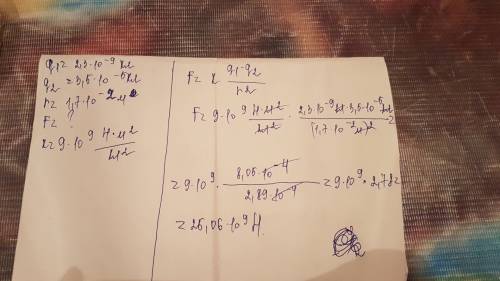 q₁ = 2,3 · 10⁻⁹ кл
q₂ = 3,5 · 10⁻⁵ кл
r = 1,7 · 10⁻² м
F = ?
k = 9 · 10⁹ Н · м² / кл²
F = k q₁ · q₂ / r²
F = 9 · 10⁹ Н · м² / кл² · 2,3 · 10⁻⁹ кл · 3,5 · 10⁻⁵ кл / (1,7 · 10⁻² м)² =
= 9 · 10⁹ · 8,05 · 10⁻⁴ / 2,89 · 10⁻⁴ = 9 · 10⁹ · 2,78 =
= 25,06 · 10⁹ Н.